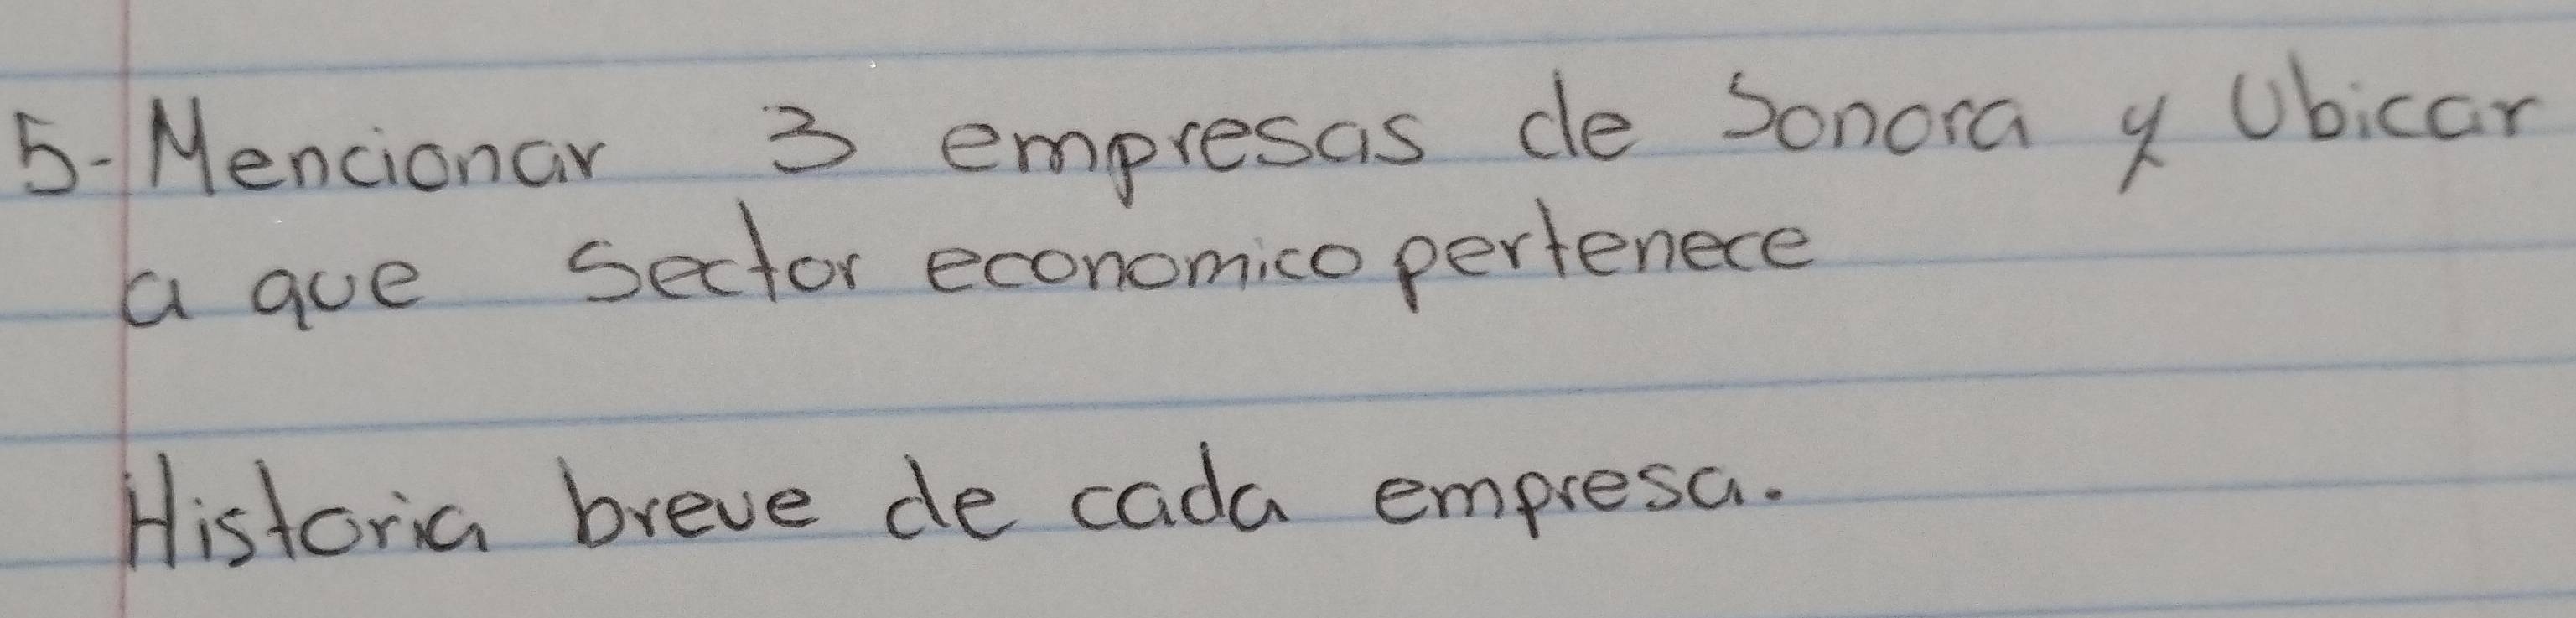 5- Mencionar 3 empresas de Sonora y Ubicar
a que Sector economico pertenece
Historia breve de cada empresa.